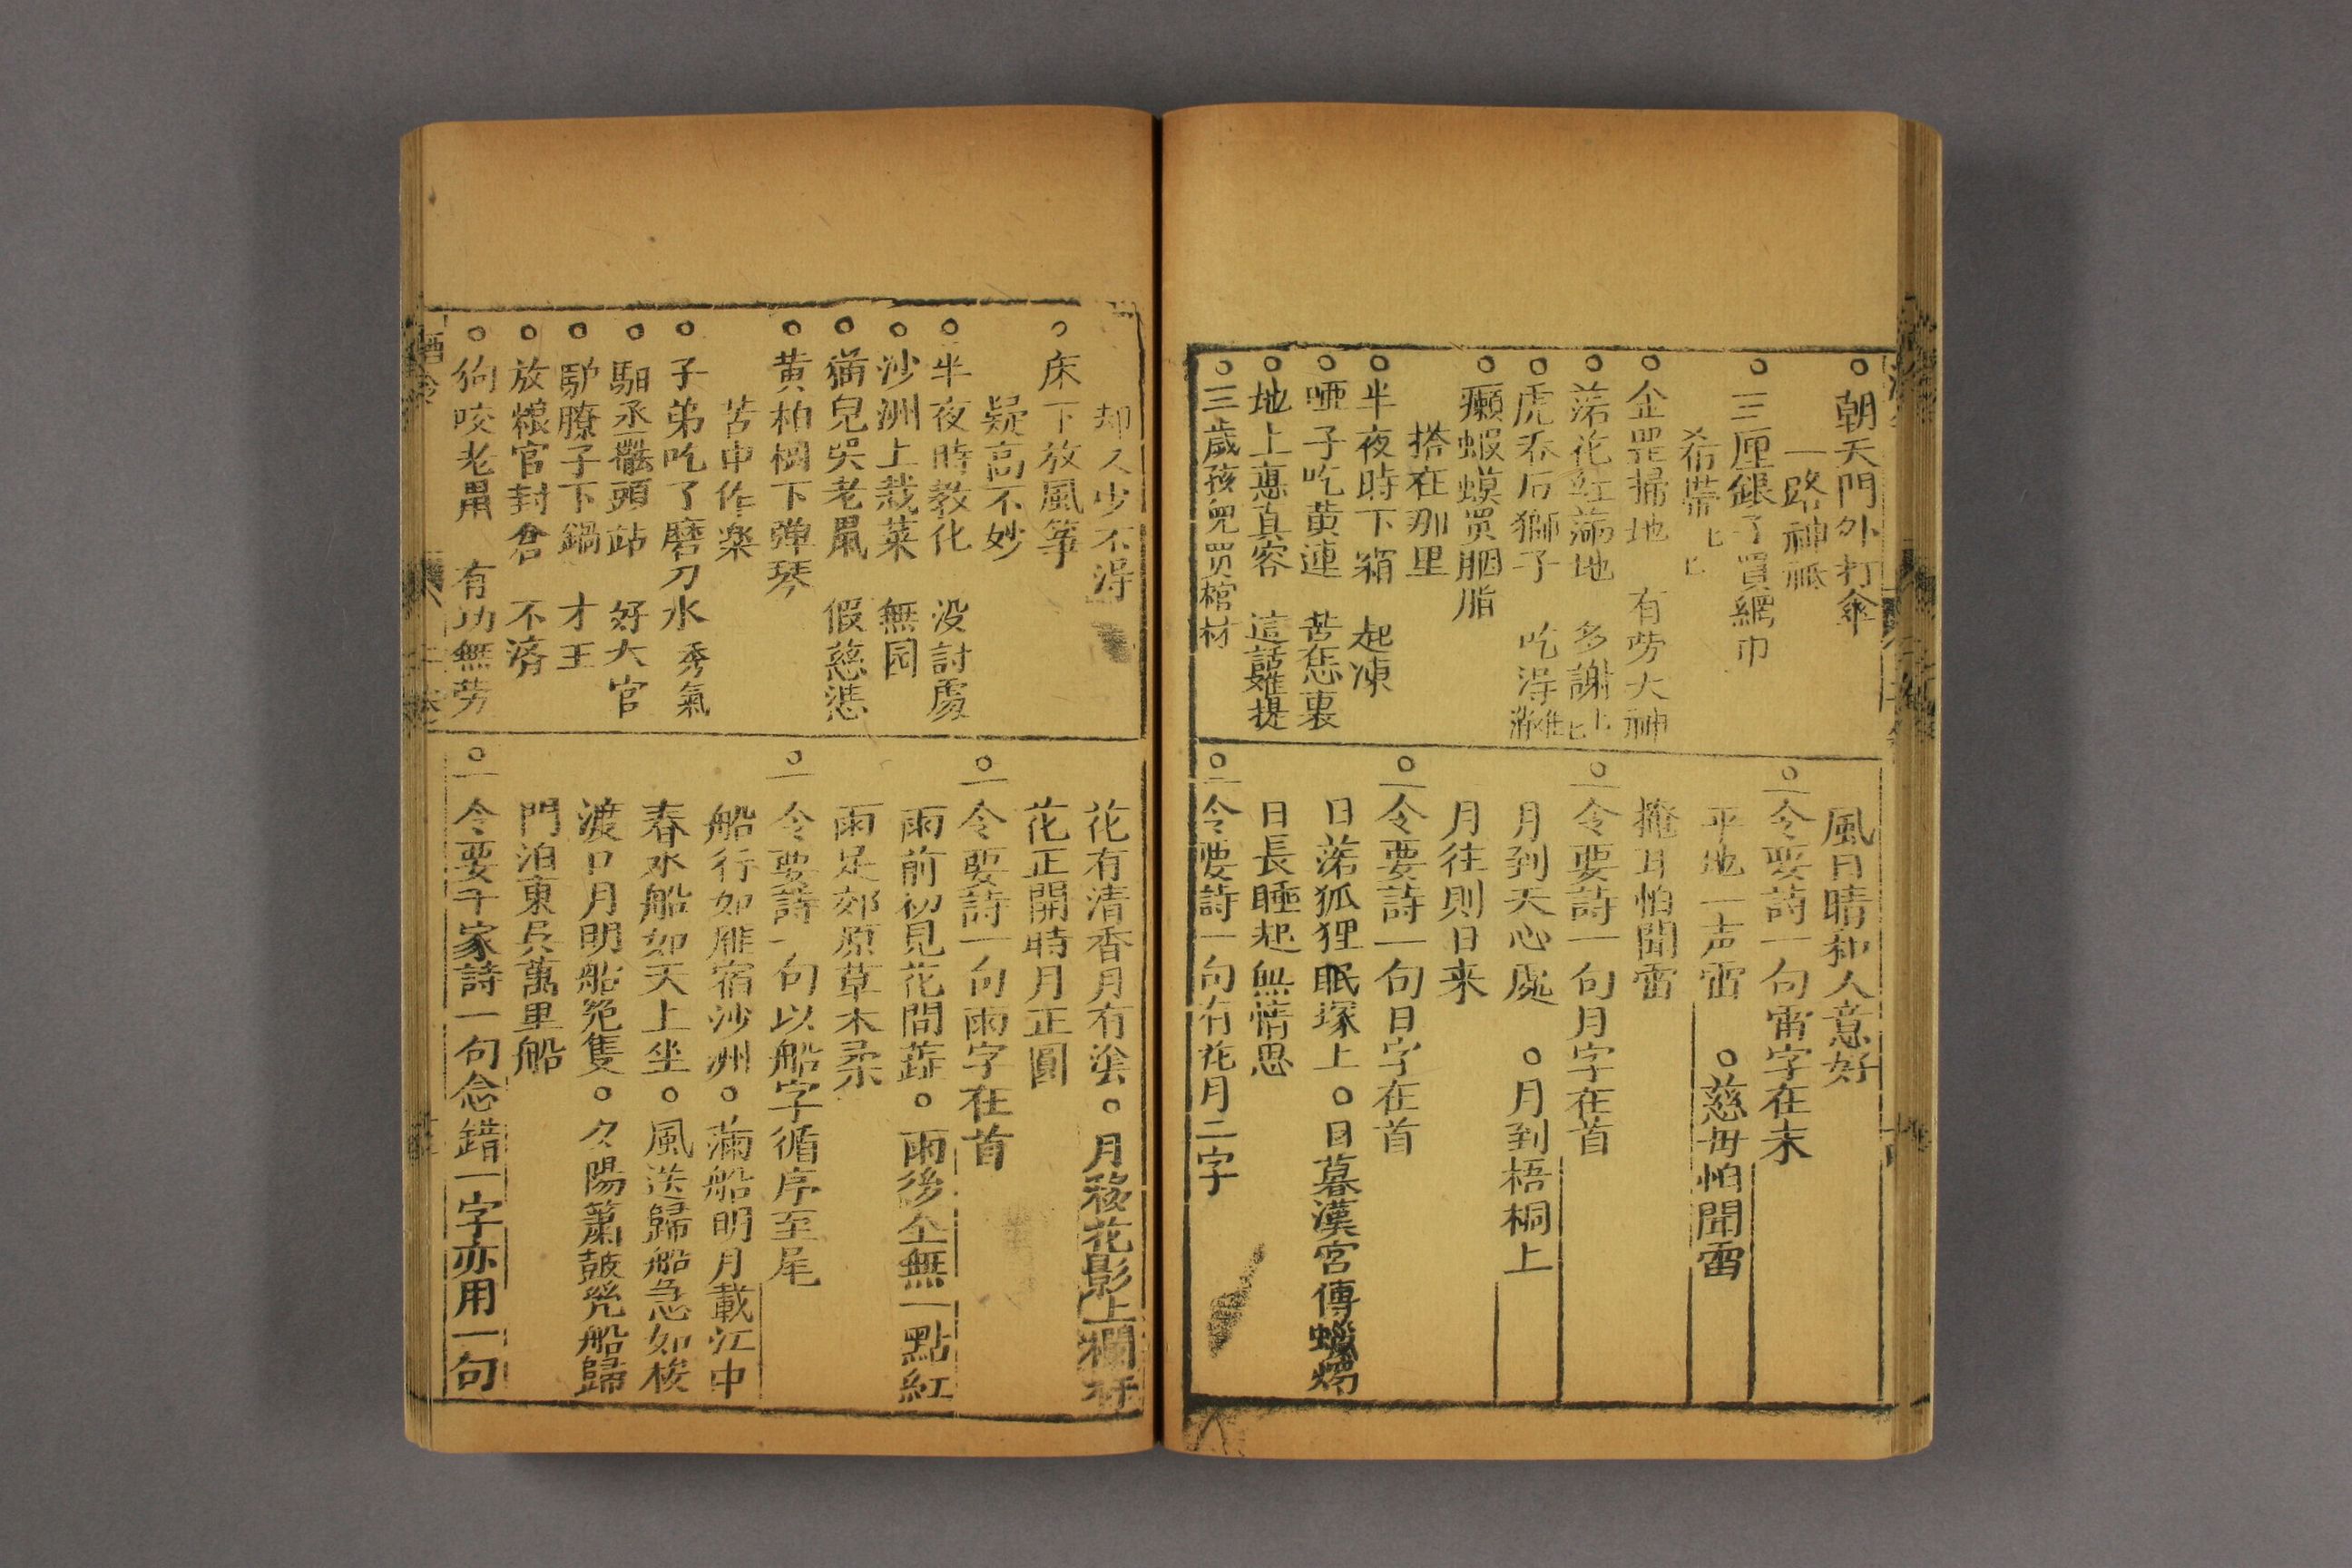 ○朝天門外打傘
一路神祗
○三厘銀子買網巾
希帶上匕
○企罡掃地　有劳大神
○落花紅满地　多謝上匕
○虎吞石獅子　吃得難
○癩蝦蟆買胭脂
搽在那里
○半夜時下霜　起凍
○啞子吃黄連　苦在裏
○地上真容　這話難提
○三歲孩兒買棺材
風日晴和人意好
○一令要詩一句雷字在末
平地一声雷　○慈毋怕聞雷
掩耳怕聞雷
○一令要詩一句月字在首
月到天心處　○月到梧桐上
月往則日来
○一令要詩一句日字在首
日落狐狸眠塚上○日暮漢宫傳蠟燭
日長睡起無情思
○一令要詩一句有花月二字
却人少不得
○床下放風筝
疑高不妙
○半夜時教化　没討處
○沙洲上栽菜　無园
○猫兒哭老鼠　假慈
○黄柏樹下弹琴
苦中作楽
○子弟吃了磨刀水　秀氣
○馹丞擺頭踮　好大官
○馿膫子下鍋　才王
○放粮官封倉　不濟
○狗咬老鼠　有功無劳
花有清香月有陰○月移花影上欄杆
花正開時月正圓
○一令要詩一句雨字在首
雨前初見花間蕋○雨後全無一點紅
雨足郊原草木柔
○一令要詩一句以船字循序至尾
船行如雁宿沙洲○满船明月載江中
春水船如天上坐○風送歸船急如梭
渡口月明船隻○夕陽簫鼓船歸
門泊東吴萬里船
○一令要千家詩一句念錯一字亦用一句